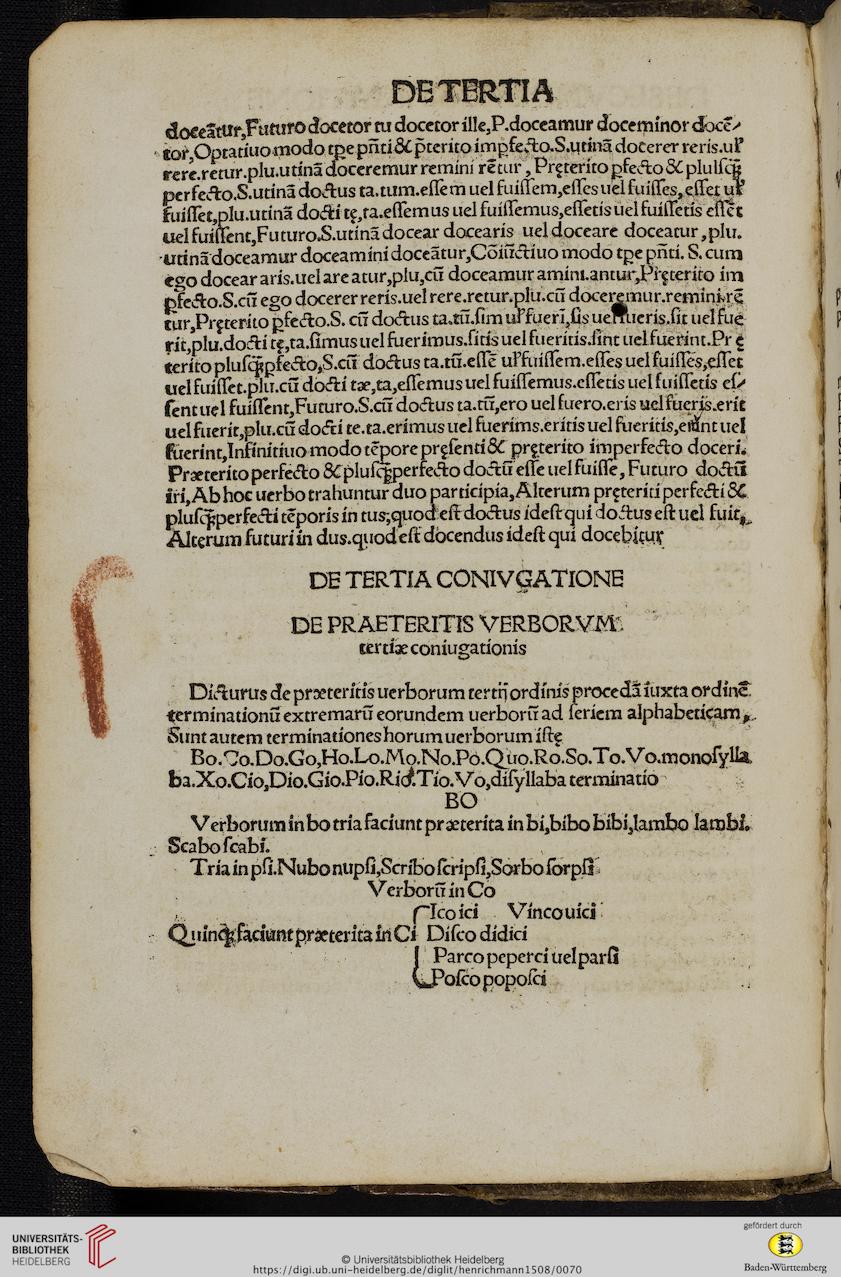 DE TERTIA
doceātur,Futuro docetor tu docetor ille,P.doceamur doceminor docē⸗
tor,Optatiuo modo tp̄e pñti & p̄terito imꝑfecto.S.utinā docerer reris.uł
rere.retur.plu.utinā doceremur remini rētur, Pręterito ꝑfecto & plusꝗ̃
perfecto.S.utinā doctus ta.tum.essem uel fuissem,esses uel fuisses, esset uł
fuisset,plu.utinā docti tę,ta.essemus uel fuissemus,essetis uel fuissetis essēt
uel fuissent,Futuro.S.utinā docear docearis uel doceare doceatur,plu.
utinā doceamur doceamini doceātur,Cōiūctiuo modo tp̄e pñti. S. cum
ego docear aris.uel are atur,plu,cū doceamur amini.antur,Pręterito im
ꝑfecto.S.cū ego docerer reris.uel rere.retur.plu.cū doceremur.remini.rē
tur,Pręterito ꝑfecto.S. cū doctus ta.tū.sim uł fueri,sis uel fueris.sit uel fue
rit,plu.docti tę,ta.simus uel fuerimus.sitis uel fueritis.sint uel fuerint.Pr ę
terito plusꝗ̃ꝑfecto,S.cū doctus ta.tū.essē uł fuissem.esses uel fuisses,esset
uel fuisset.plu.cū docti tæ,ta,essemus uel fuissemus.essetis uel fuissetis es⸗
sent uel fuissent,Futuro.S.cū doctus ta.tū,ero uel fuero.eris uel fueris.erit
uel fuerit,plu.cū docti te.ta.erimus uel fuerims.eritis uel fueritis,erunt uel
fuerint,Infinitiuo modo tēpore pręsenti & pręterito imperfecto doceri.
Præterito perfecto & plusꝗ̃perfecto doctū esse uel fuisse, Futuro doctū
iri,Ab hoc uerbo trahuntur duo participia,Alterum pręteriti perfecti &
plusꝗ̃perfecti tēporis in tus;quod est doctus idest qui doctus est uel fuit,
Alterum futuri in dus.quod est docendus idest qui docebitur
DE TERTIA CONIVGATIONE
DE PRAETERITIS VERBORVM
tertiæ coniugationis
Dicturus de præteritis uerborum tertij ordinis procedā iuxta ordinē
terminationū extremarū eorundem uerborū ad seriem alphabeticam,
Sunt autem terminationes horum uerborum istę
Bo.Co.Do.Go,Ho.Lo.Mo.No.Po.Quo.Ro.So.To.Vo.monosylla
ba.Xo.Cio,Dio.Gio.Pio.Rio.Tio.Vo,disyllaba terminatio
BO
Verborum in bo tria faciunt præterita in bi,bibo bibi,lambo lambi.
Scabo scabi.
Tria in psi.Nubo nupsi,Scribo scripsi,Sorbo sorpsi
Verborū in Co
Ico ici Vinco uici
Quinqꝫ faciunt præterita in Ci Disco didici
Parco peperci uel parsi
Posco poposci
UNIVERSITÄTS-
BIBLIOTHEK
HEIDELBERG
© Universitätsbibliothek Heidelberg
https://digi.ub.uni-heidelberg.de/diglit/henrichmann1508/0070
gefördert durch
Baden-Württemberg